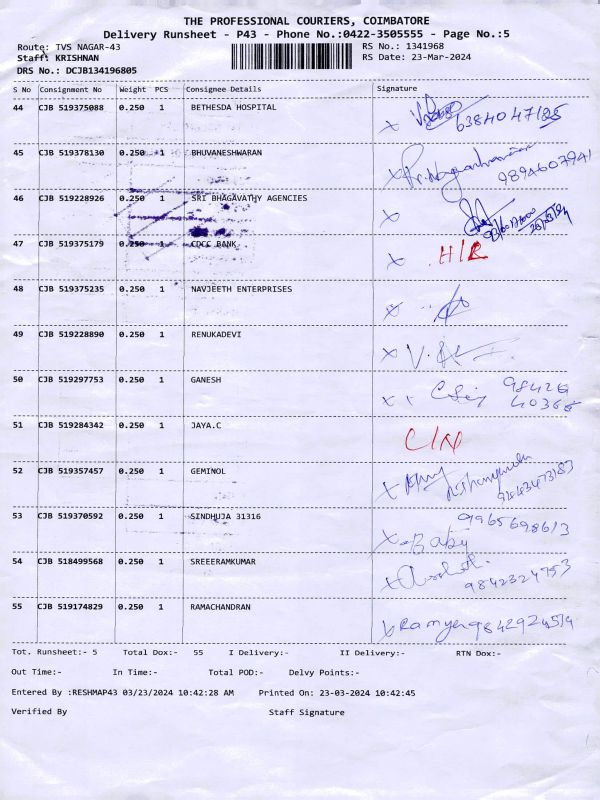 THE PROFESSIONAL COURIERS, COIMBATORE
Delivery Runsheet - P43 - Phone No.:0422-3505555 - Page No.:5
Route: TVS NAGAR-43
RS No.: 1341968
Staff: KRISHNAN
RS Date: 23-Mar-2024
DRS No.: DCJB134196805
S No Consignment No Weight PCS Consignee Details Signature
44 CJB 519375088 0.250 1 BETHESDA HOSPITAL
x 6384047185
45 CJB 519378130 0.250 1 BHUVANESHWARAN
x
9894607941
46 CJB 519228926 0.250 1 SRI BHAGAVATHY AGENCIES
x
47 CJB 519375179 0.250 1 CDCC BANK
x H/R
48 CJB 519375235 0.250 1 NAVJEETH ENTERPRISES
x
49 CJB 519228890 0.250 1 RENUKADEVI
x
50 CJB 519297753 0.250 1 GANESH
x
51 CJB 519284342 0.250 1 JAYA.C
C/N
52 CJB 519357457 0.250 1 GEMINOL
x
9443473183
53 CJB 519370592 0.250 1 SINDHUJA 31316
9965698613
x Baby
54 CJB 518499568 0.250 1 SREEERAMKUMAR
x
9842324753
55 CJB 519174829 0.250 1 RAMACHANDRAN
x Ramya
Tot. Runsheet:- 5 Total Dox:- 55 I Delivery:- II Delivery:- RTN Dox:-
Out Time:- In Time:- Total POD:- Delvy Points:-
Entered By :RESHMAP43 03/23/2024 10:42:28 AM Printed On: 23-03-2024 10:42:45
Verified By Staff Signature